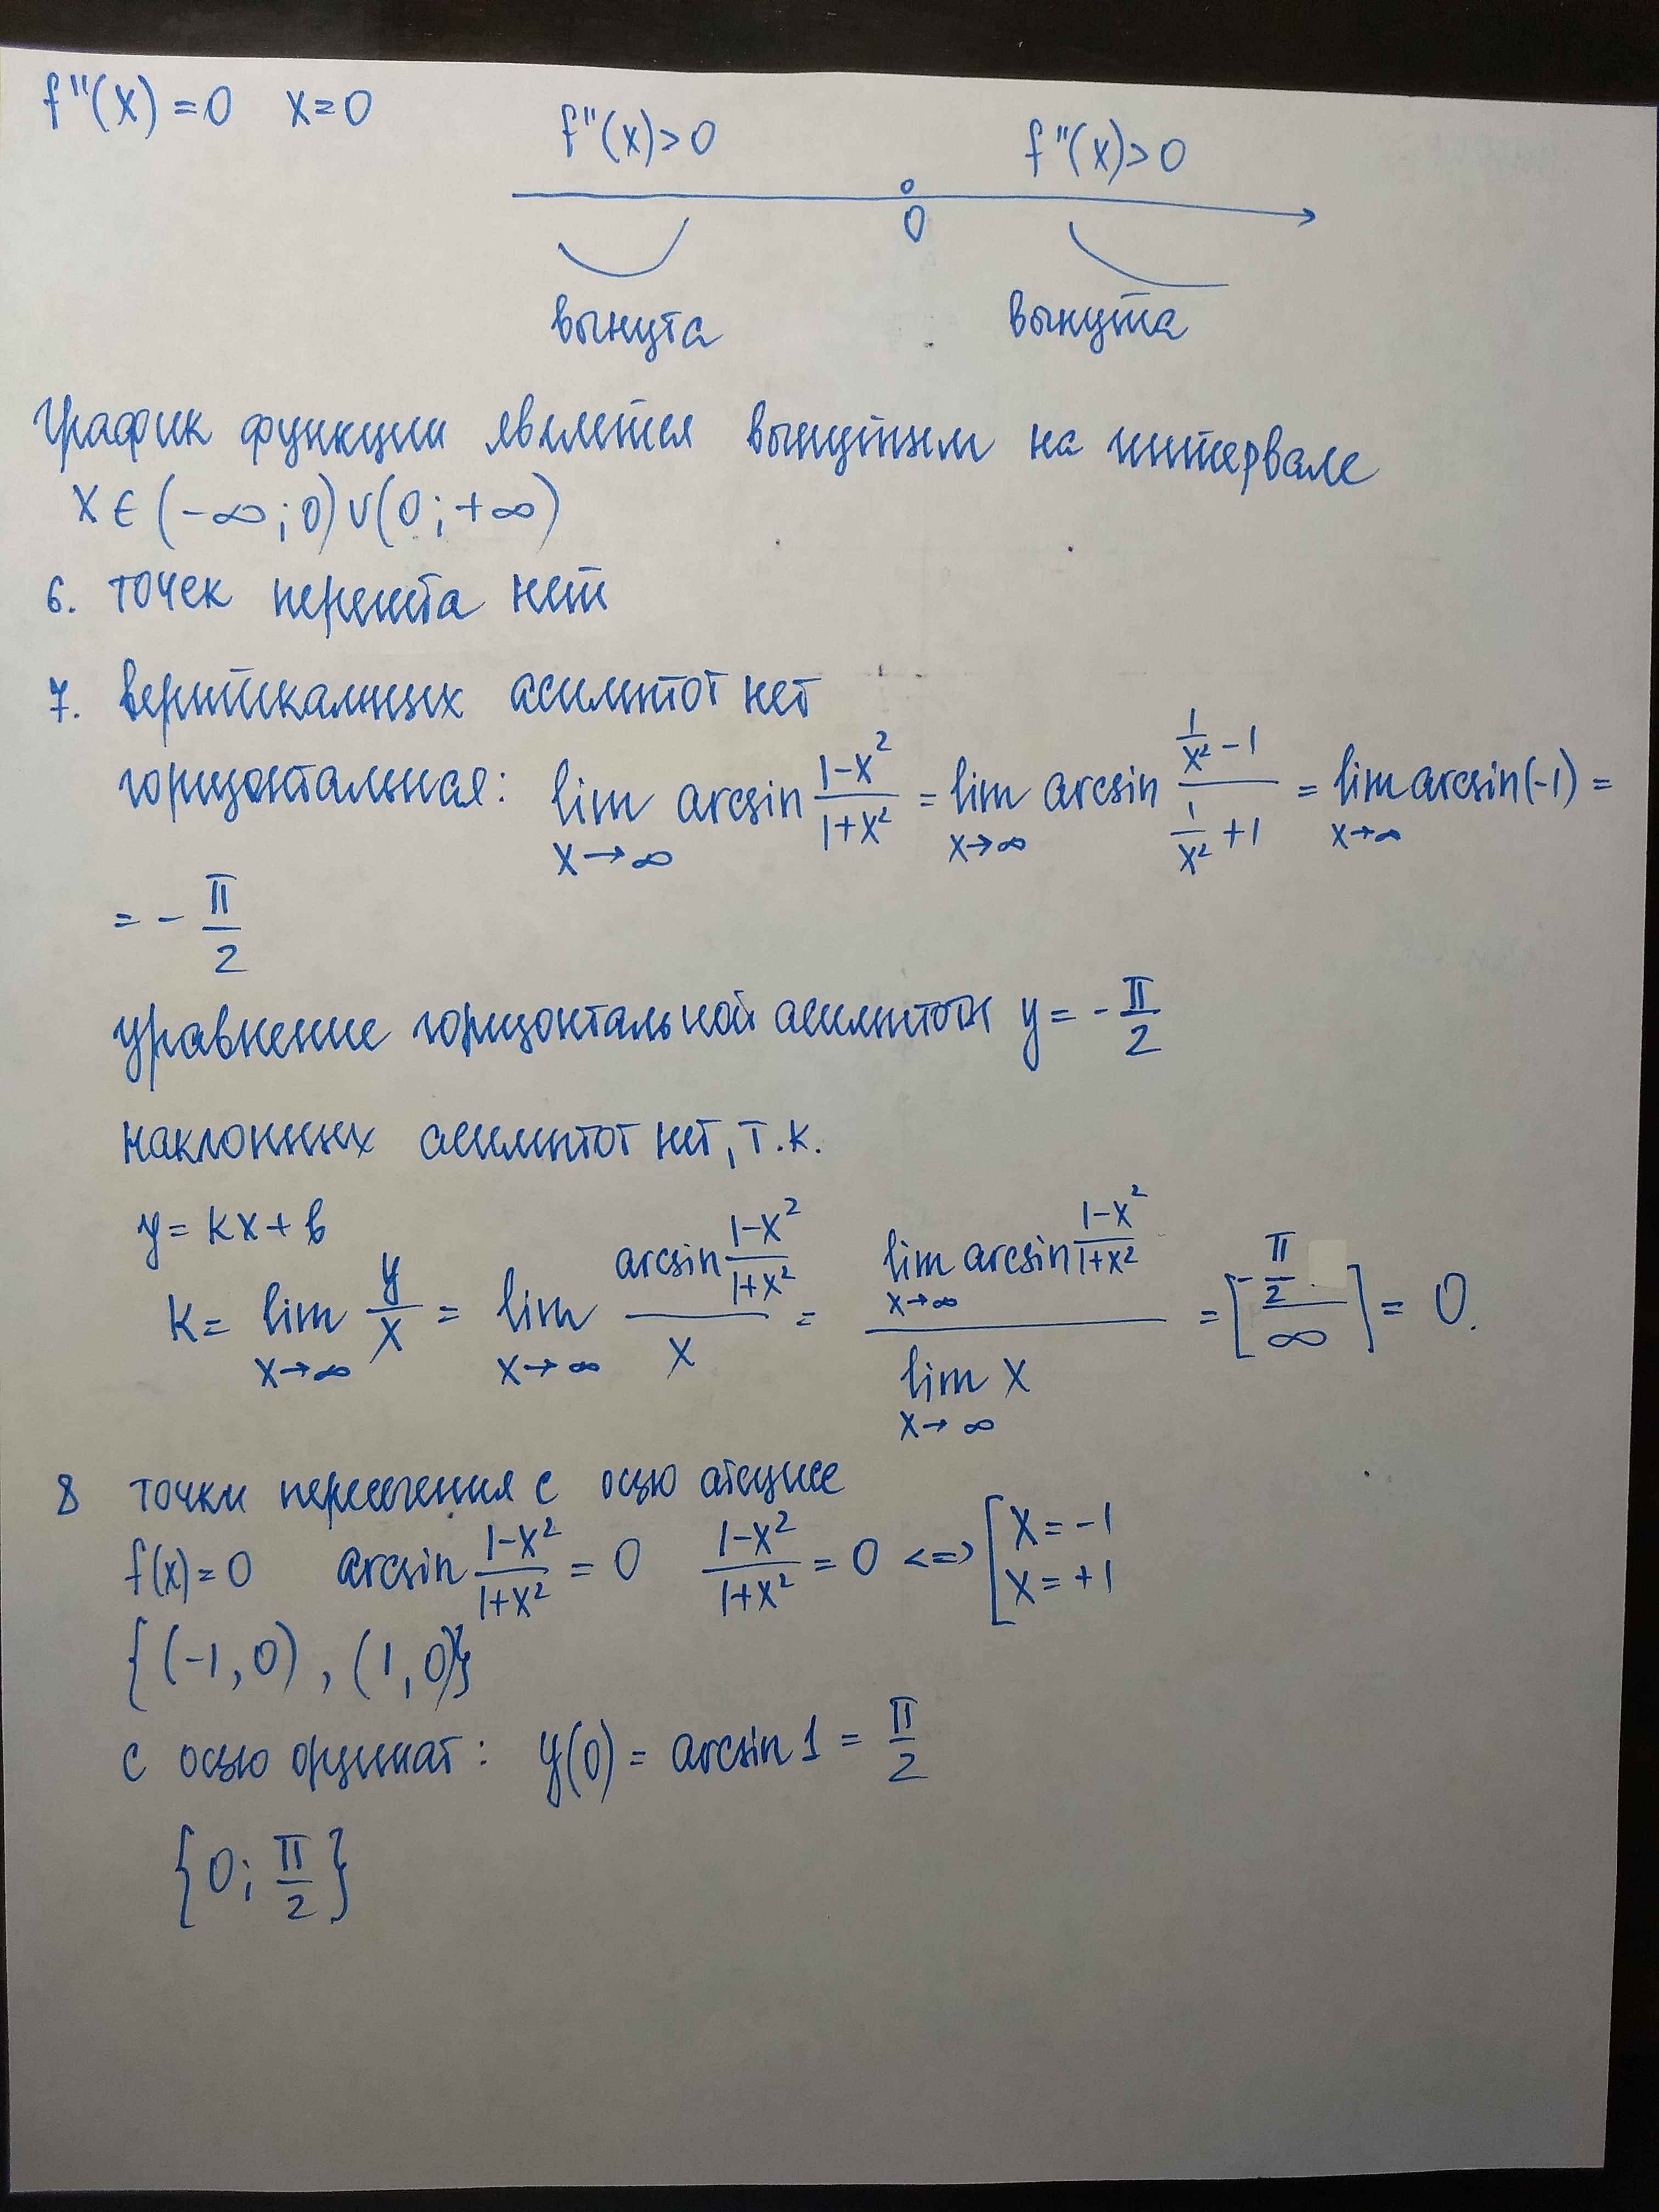 f''(x) = 0 x = 0
f''(x) > 0 f''(x) > 0
0
вогнута вогнута
График функции является вогнутым на интервале
x ∈ (-∞; 0) ∪ (0; +∞)
6. точек перегиба нет
7. вертикальных асимптот нет
горизонтальная: lim x→∞ arcsin (1-x²)/(1+x²) = lim x→∞ arcsin (1/x² - 1)/(1/x² + 1) = lim x→∞ arcsin(-1) =
= - π/2
уравнение горизонтальной асимптоты y = - π/2
наклонных асимптот нет, т.к.
y = kx + b
k = lim x→∞ y/x = lim x→∞ (arcsin (1-x²)/(1+x²))/x = (lim x→∞ arcsin (1-x²)/(1+x²))/(lim x→∞ x) = [(-π/2)/∞] = 0.
8 точки пересечения с осью абсцисс
f(x) = 0 arcsin (1-x²)/(1+x²) = 0 (1-x²)/(1+x²) = 0 <=> [x = -1
x = +1
{(-1, 0), (1, 0)}
с осью ординат: y(0) = arcsin 1 = π/2
{0; π/2}